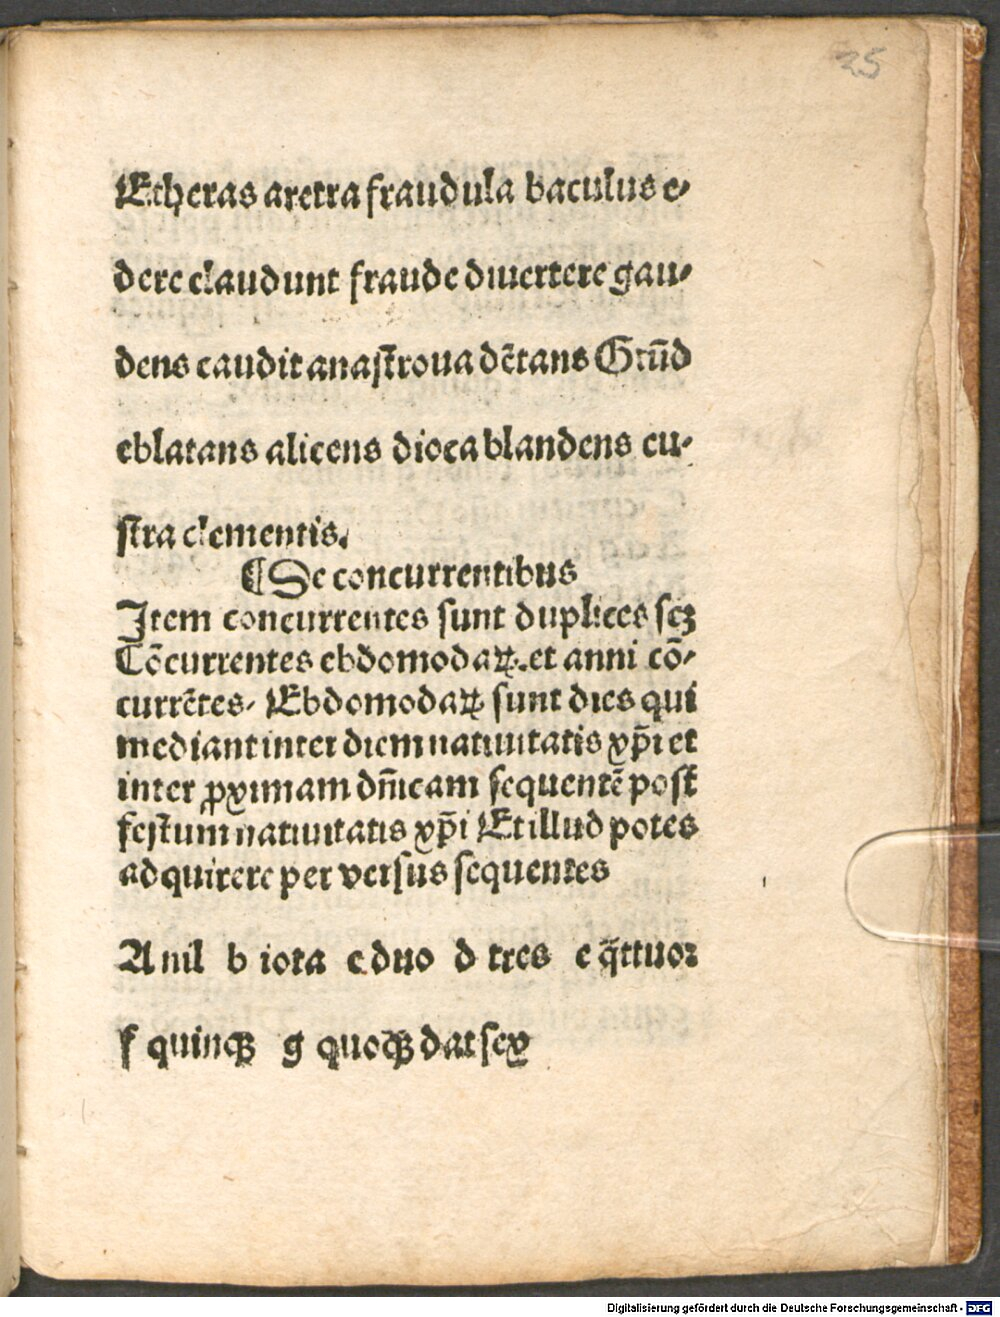 25
Etheras aretra fraudula baculus e-
dere claudunt fraude diuertere gau-
dens caudit anaſtroua dētans Gtūd
eblatans alicens dioca blandens cu-
ſtra clementis.
¶ De concurrentibus
Item concurrentes ſunt duplices ſcꝫ
Cōcurrentes ebdomodaꝝ. et anni cō-
currētes. Ebdomodaꝝ ſunt dies qui
mediant inter diem natiuitatis xp̄i et
inter ꝓximam dn̄icam ſequentē poſt
feſtum natiuitatis xp̄i Et illud potes
adquirere per verſus ſequentes
A nil b iota c duo d tres e q̄ttuoꝛ
f quinqꝫ g quoqꝫ dat ſex
Digitalisierung gefördert durch die Deutsche Forschungsgemeinschaft - DFG